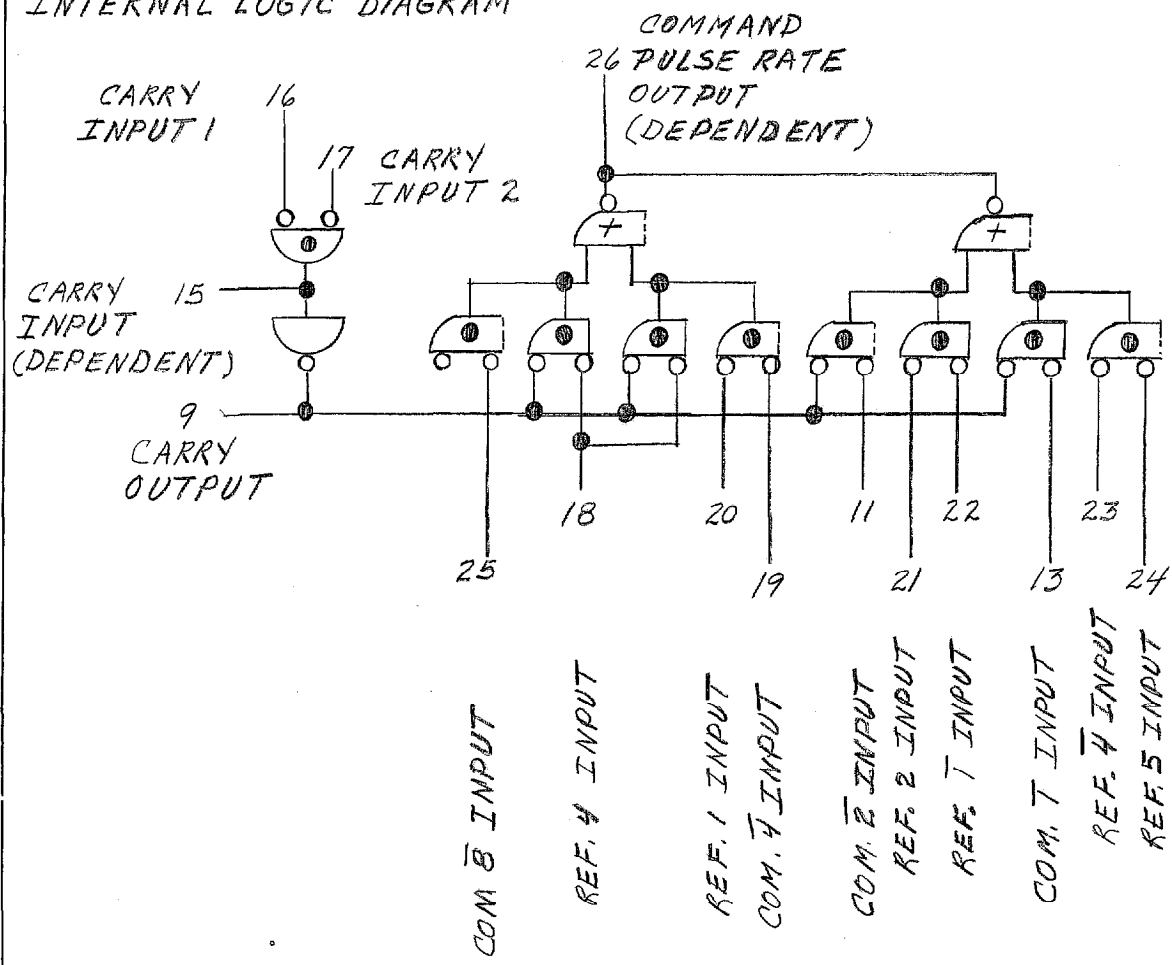 INTERNAL LOGIC DIAGRAM
COMMAND
26 PULSE RATE
OUTPUT
(DEPENDENT)
CARRY 16
INPUT 1
17 CARRY
INPUT 2
+
+
CARRY 15
INPUT
(DEPENDENT)
9
CARRY
OUTPUT
18
20
11
22
23
25
19
21
13
24
COM 8̅ INPUT
REF. 4 INPUT
REF. 1 INPUT
COM. 4̅ INPUT
COM. 2̅ INPUT
REF. 2 INPUT
REF. 1̅ INPUT
COM. 1̅ INPUT
REF. 4̅ INPUT
REF. 5 INPUT